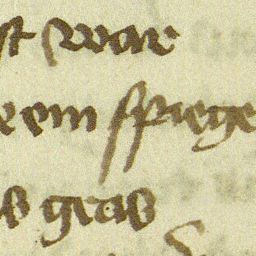 st war
e ein spiege
s gras